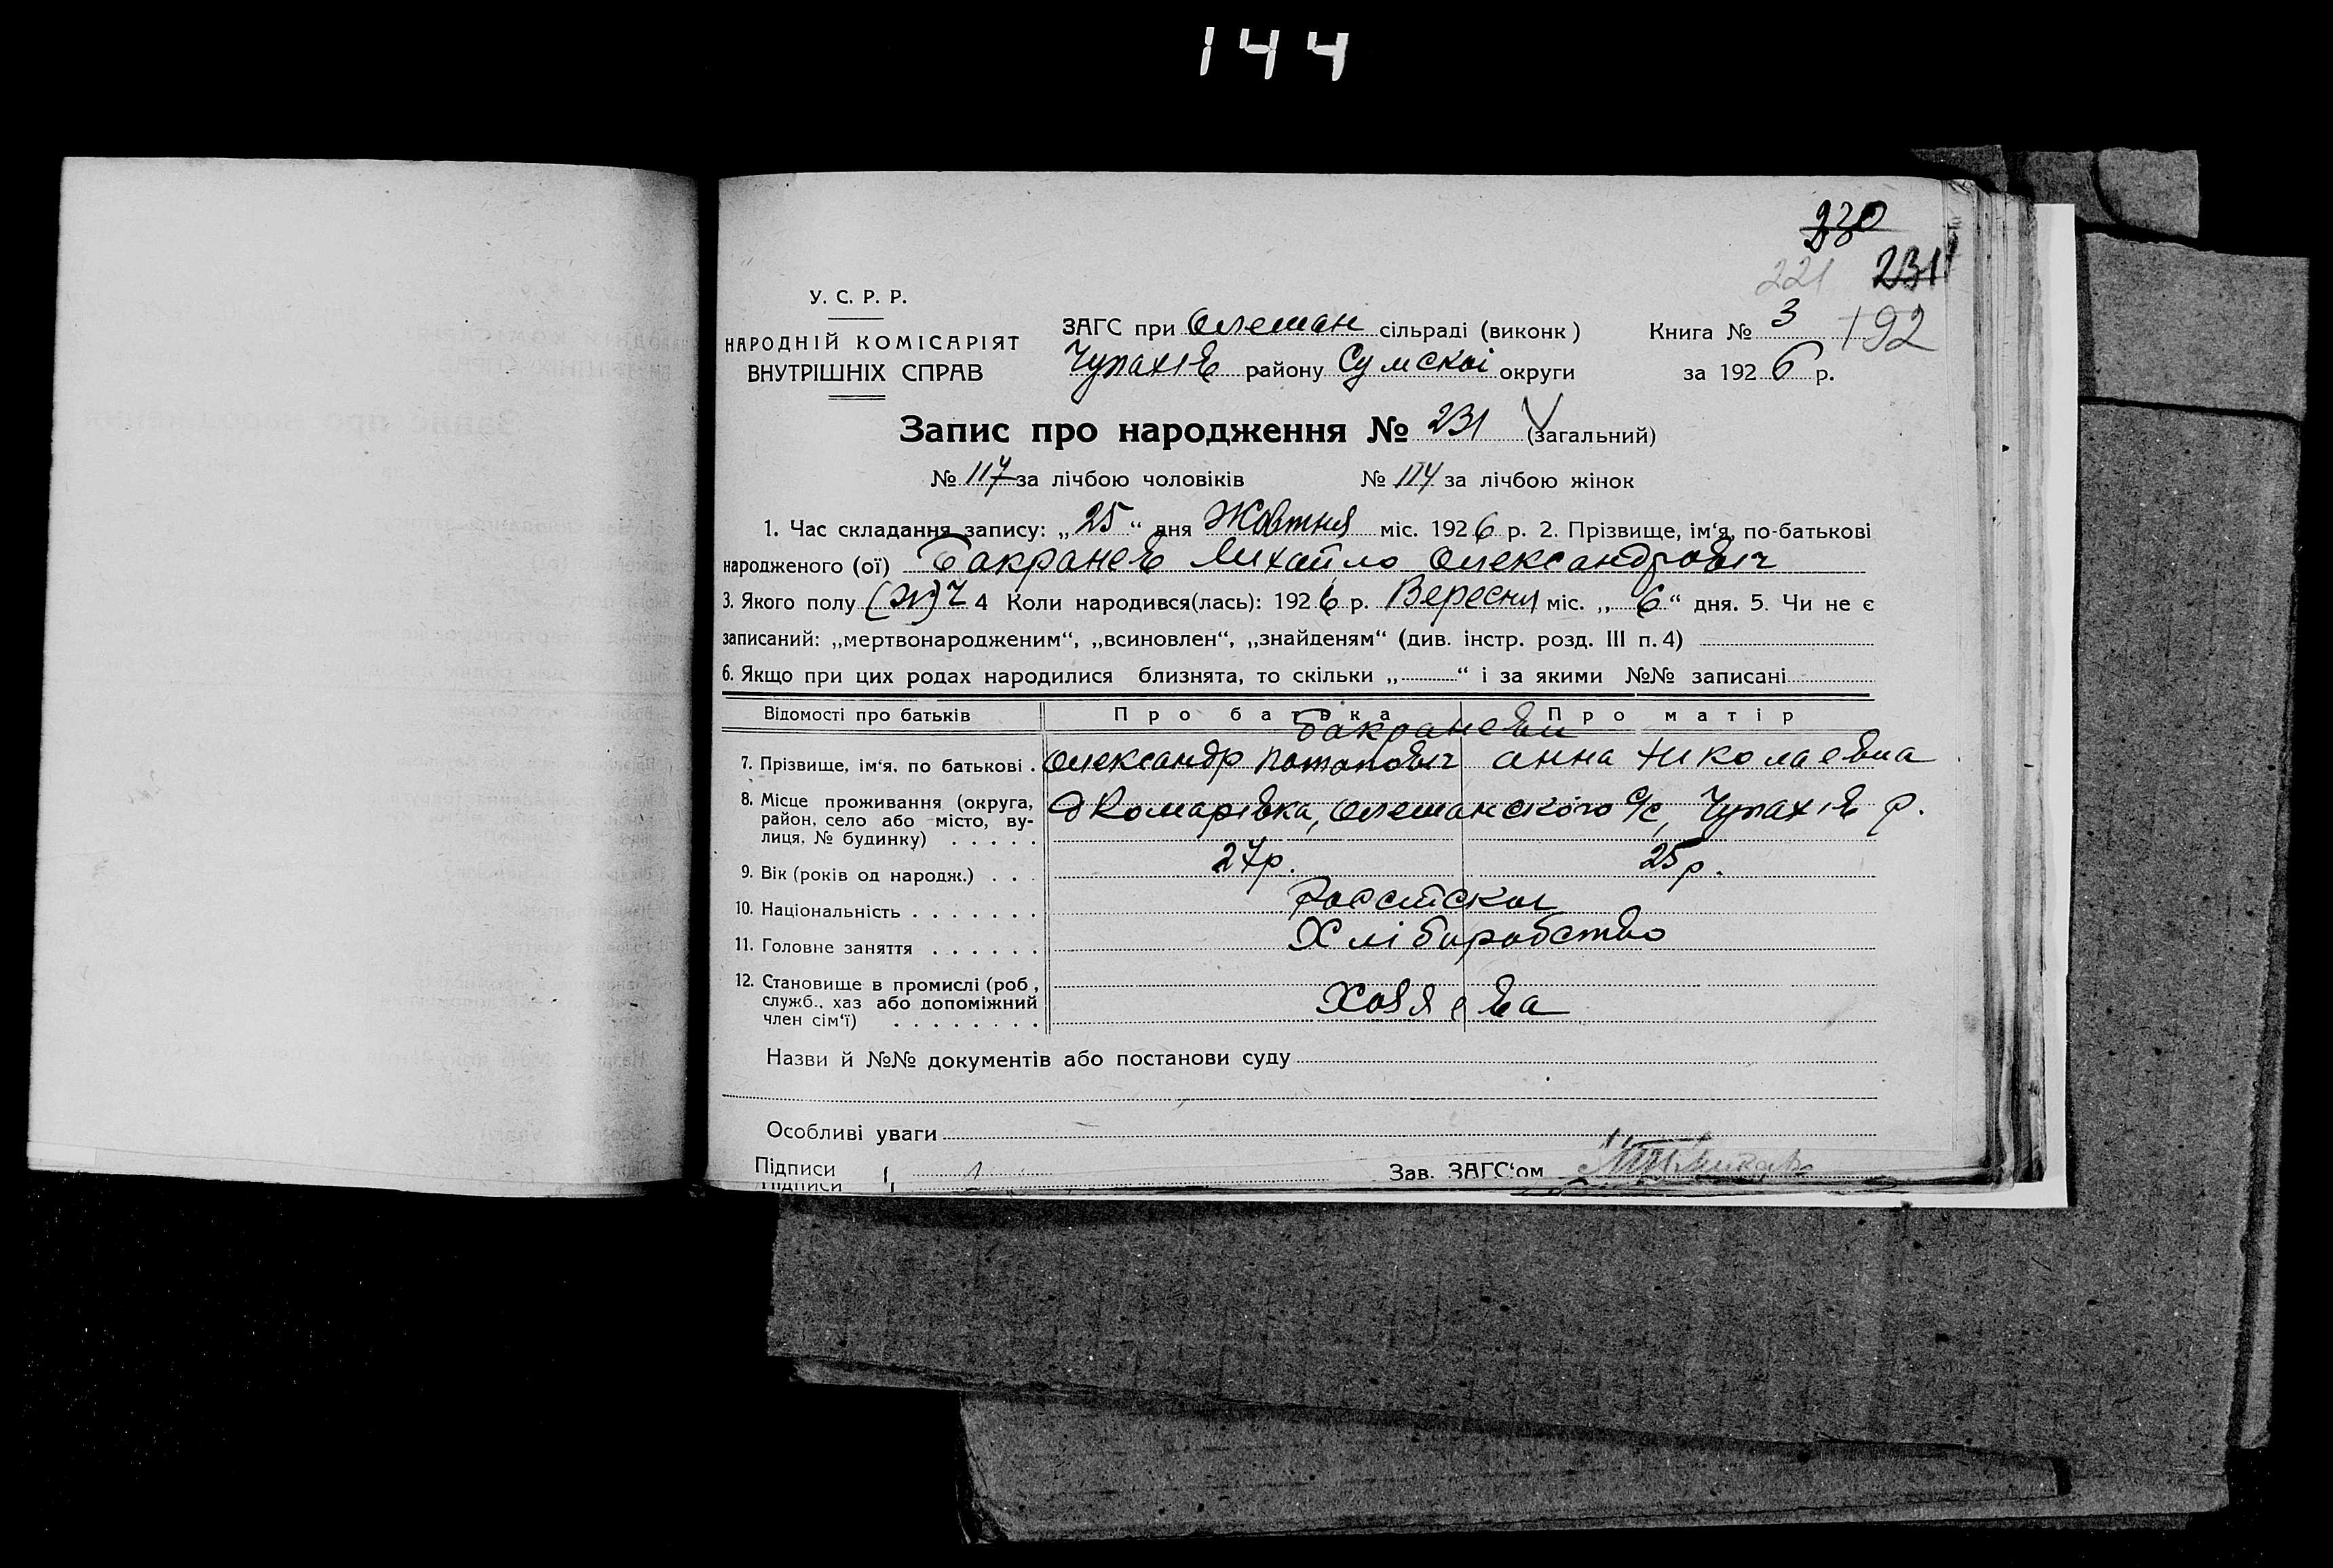 144
230
221 231
У. С. Р. Р.
НАРОДНІЙ КОМІСАРІЯТ
ВНУТРІШНІХ СПРАВ
ЗАГС при Олешан сільраді (виконк)
Чупахів району Сумскоі округи
Книга № 3 192
за 1926 р.
Запис про народження № 231 (загальний)
№ 117 за лічбою чоловіків № 114 за лічбою жінок
1. Час складання запису: „25“ дня Жовтня міс. 1926 р. 2. Прізвище, ім‘я, по-батькові
народженого (ої) Бакранев Михайло Олександровіч
3. Якого полу (ж) Ч 4 Коли народився(лась): 1926 р. Вересня міс. „6“ дня. 5. Чи не є
записаний: „мертвонародженим“, „всиновлен“, „знайденям“ (див. інстр. розд. III п. 4)
6. Якщо при цих родах народилися близнята, то скільки „ “ і за якими №№ записані
Відомості про батьків Про батька Про матір
Бакраневи
7. Прізвище, ім‘я, по батькові . Олександр Потапович Анна Николаевна
8. Місце проживання (округа,
район, село або місто, ву-
лиця, № будинку) . . . . .
Комарівка, Олешанского с/с, Чупахів р.
9. Вік (років од народж.) . . . 27р. 25р.
10. Національність . . . . . . .
11. Головне заняття . . . . . . Хліборобство
12. Становище в промислі (роб,
служб., хаз або допоміжний
член сім‘ї) . . . . . . . .
Хозяева
Назви й №№ документів або постанови суду
Особливі уваги
Підписи Зав. ЗАГС‘ом
Підписи